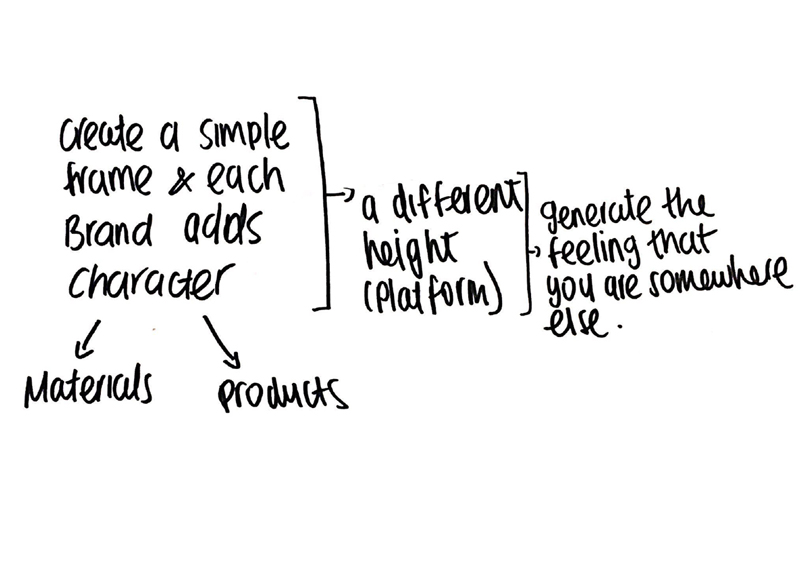 create a simple
frame & each
Brand adds
character
Materials
products
a different
height
(platform)
generate the
feeling that
you are somewhere
else.